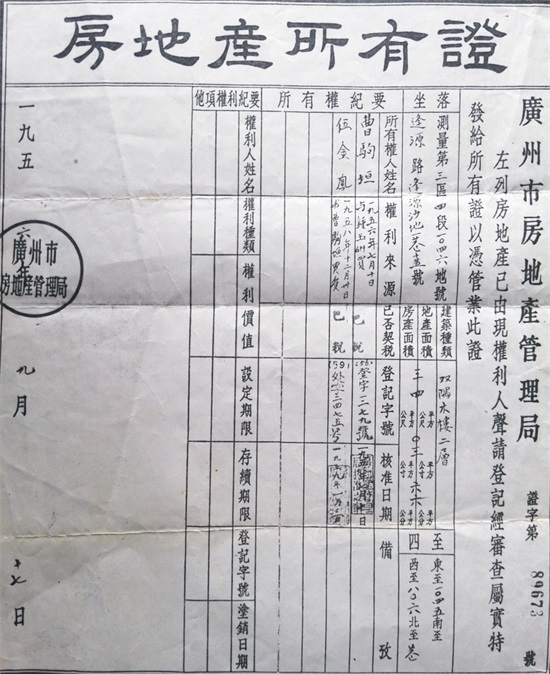 房地產所有證
廣州市房地產管理局
證字第 89673 號
左列房地產已由現權利人聲請登記經審查屬實特
發給所有證以憑管業此證
坐落
測量第三區四段一〇四六地號
逢源路逢源沙地一巷
建築種類
双隅木樓二層
地產面積
房產面積
平方公尺
平方公寸
平方公分
四至
東至一〇四五南至
西至八〇六北至巷
所有權紀要
所有權人姓名
權利來源
已否契税
登記字號
核准日期
備攷
曹駒垣
一九五六年七月十日
已税
登字一二七九號
伍金鳳
一九五八年十二月廿日
已税
他項權利紀要
權利人姓名
權利種類
權利價值
設定期限
存續期限
登記字號
塗銷日期
一九五六年九月十七日
廣州市
房地產管理局